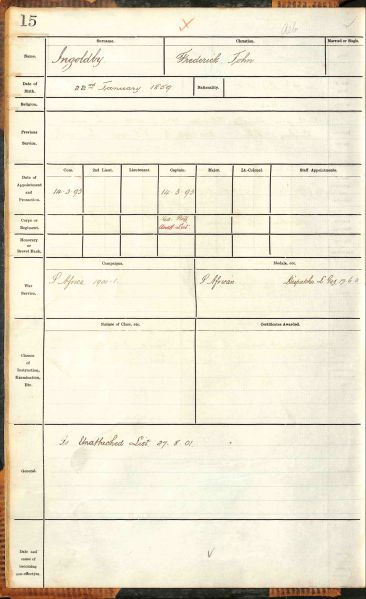 15
Surname. Christian. Married or Single.
Name. Ingoldby Frederick John
Date of Birth. 22nd January 1859 Nationality.
Religion.
Previous Service.
Date of Appointment and Promotion. Com. 2nd Lieut. Lieutenant Captain. Major. Lt.-Colonel. Staff Appointments.
14·3·93 14·3·93
Corps or Regiment.
Unatt. List
Honorary or Brevet Rank.
Campaigns. Medals, etc.
War Service. S Africa 1900-1. S African
Nature of Class, etc. Certificates Awarded.
Classes of Instruction, Examination, Etc.
General. To Unattached List 27.8.01.
Date and cause of becoming non-effective.